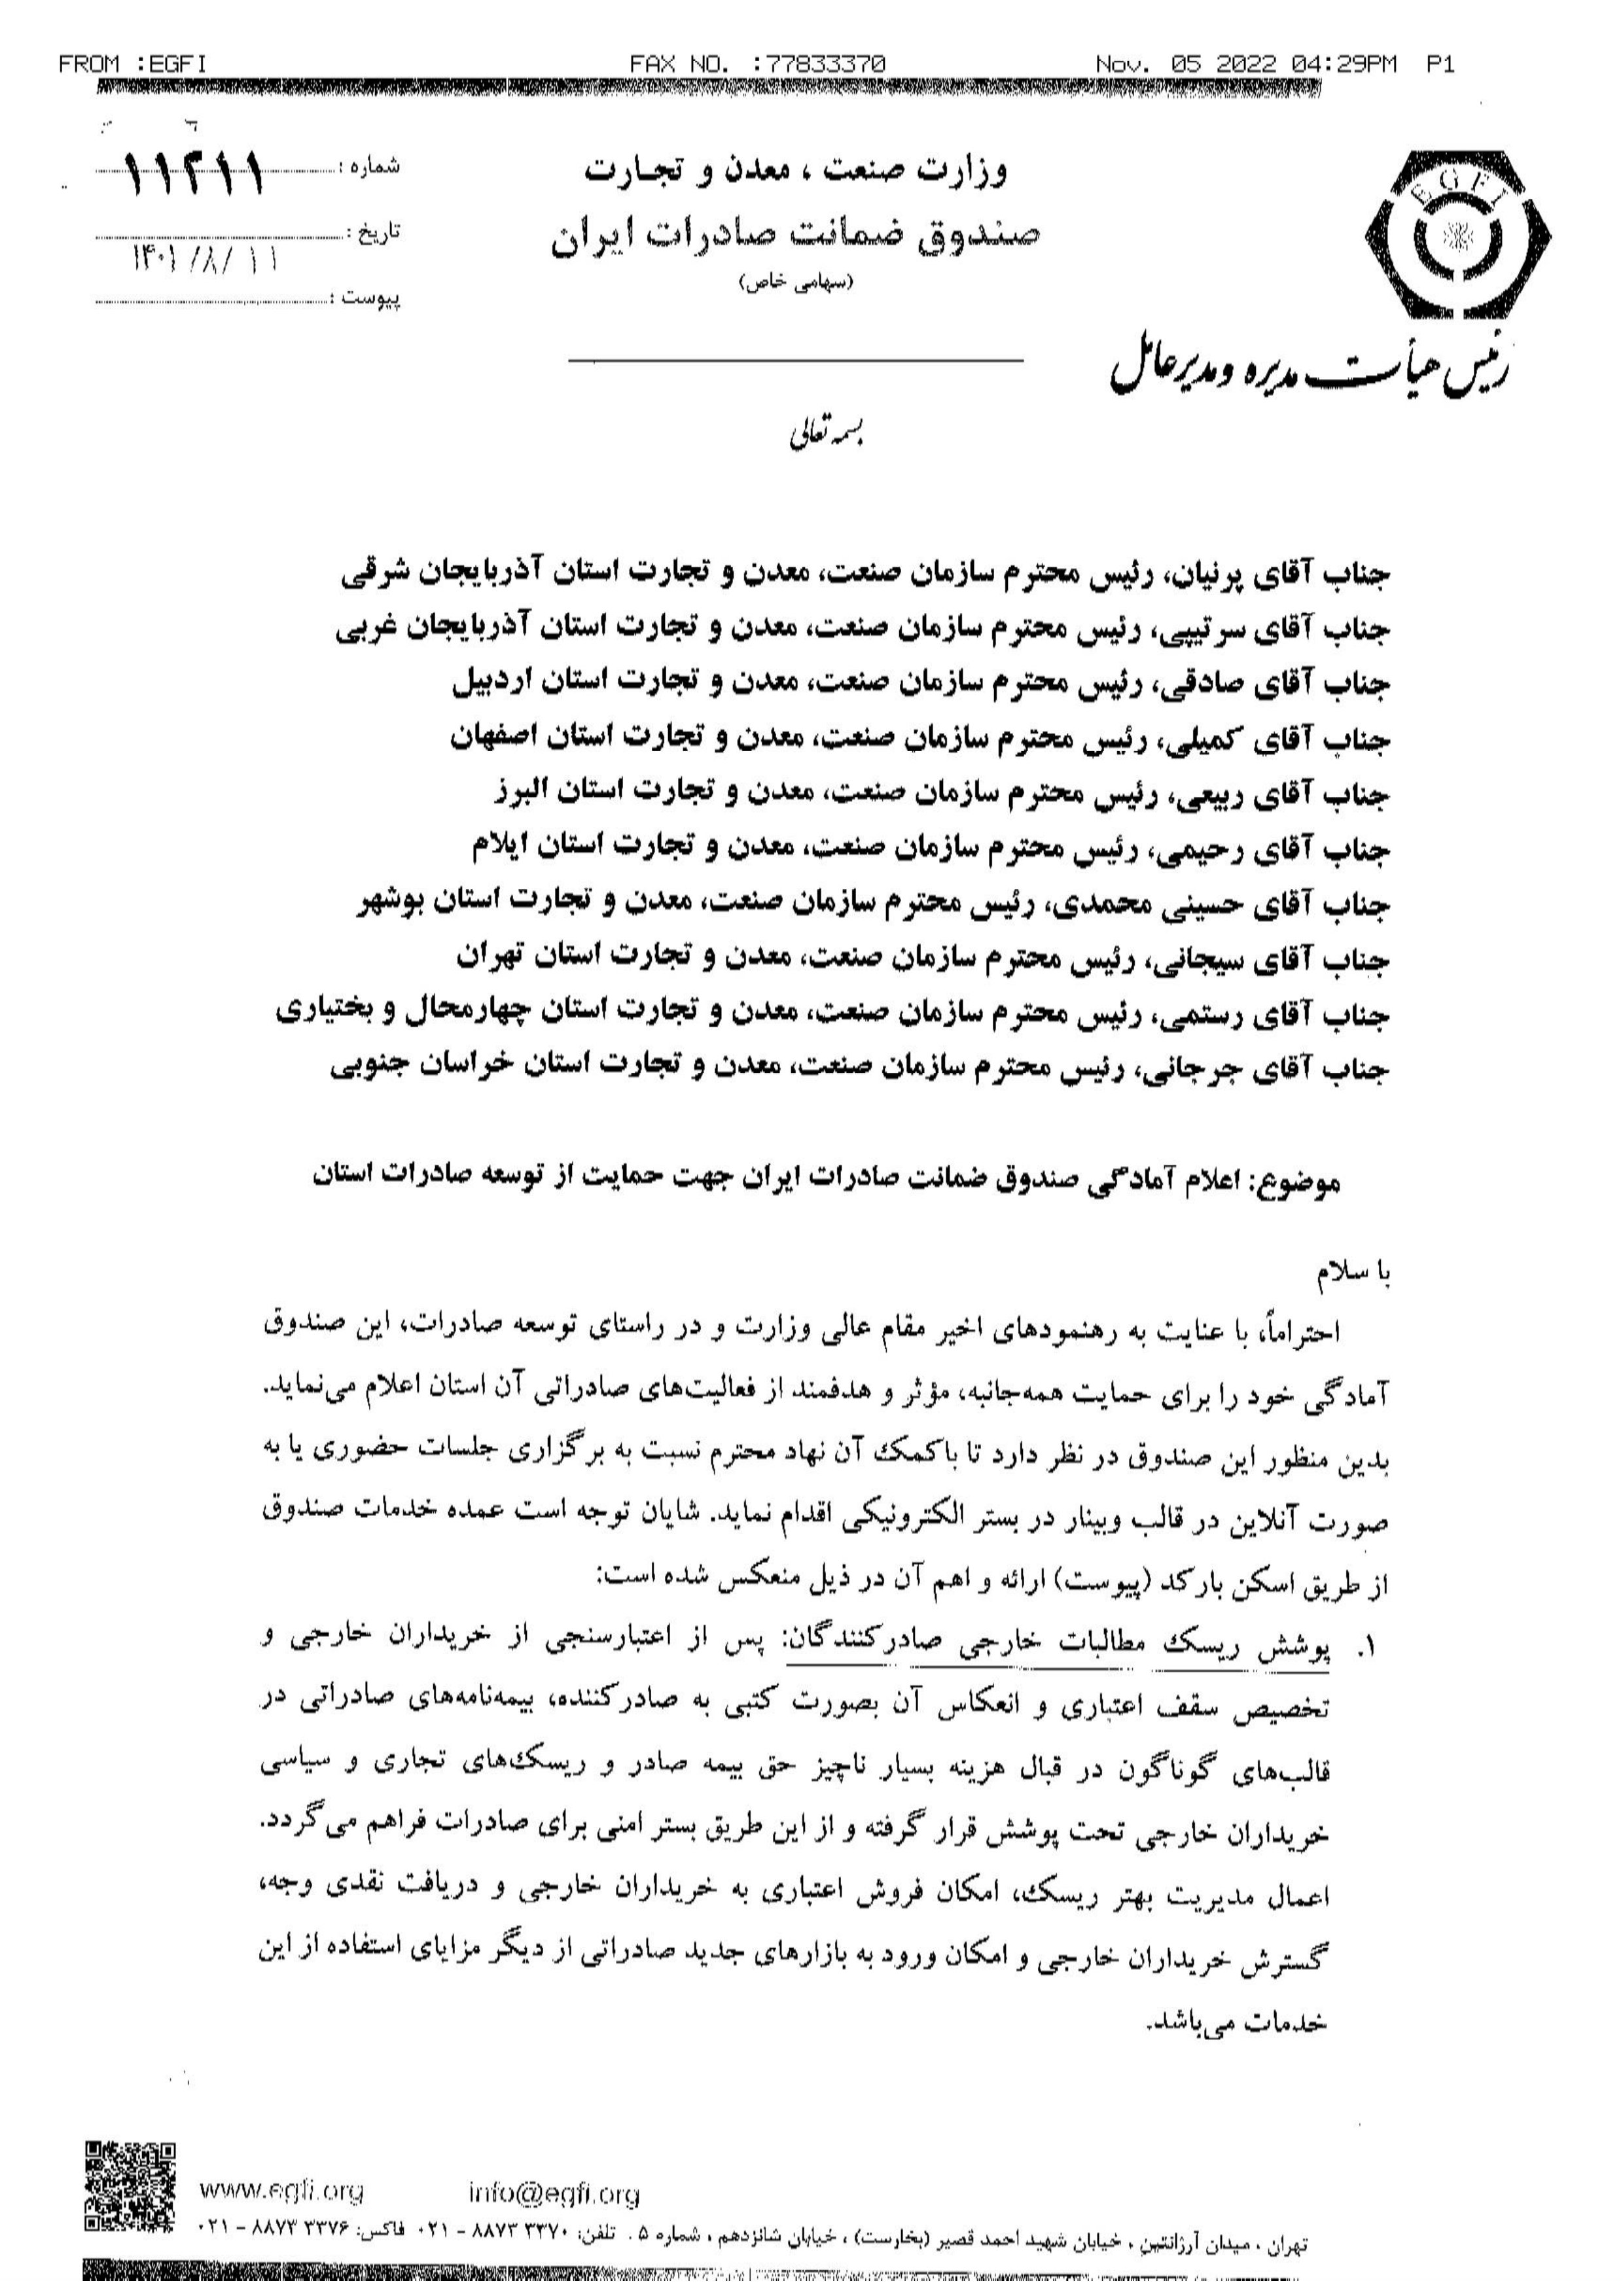 FROM :EGFI FAX NO. :77833370 Nov. 05 2022 04:29PM P1
EGFI
وزارت صنعت ، معدن و تجارت
صندوق ضمانت صادرات ایران
(سهامی خاص)
شماره : ۱۱۲۱۱
تاریخ : ۱۴۰۱/۸/۱۱
پیوست :
رئیس هیأت مدیره و مدیرعامل
بسمه تعالی
جناب آقای پرنیان، رئیس محترم سازمان صنعت، معدن و تجارت استان آذربایجان شرقی
جناب آقای سرتیپی، رئیس محترم سازمان صنعت، معدن و تجارت استان آذربایجان غربی
جناب آقای صادقی، رئیس محترم سازمان صنعت، معدن و تجارت استان اردبیل
جناب آقای کمیلی، رئیس محترم سازمان صنعت، معدن و تجارت استان اصفهان
جناب آقای ربیعی، رئیس محترم سازمان صنعت، معدن و تجارت استان البرز
جناب آقای رحیمی، رئیس محترم سازمان صنعت، معدن و تجارت استان ایلام
جناب آقای حسینی محمدی، رئیس محترم سازمان صنعت، معدن و تجارت استان بوشهر
جناب آقای سیجانی، رئیس محترم سازمان صنعت، معدن و تجارت استان تهران
جناب آقای رستمی، رئیس محترم سازمان صنعت، معدن و تجارت استان چهارمحال و بختیاری
جناب آقای جرجانی، رئیس محترم سازمان صنعت، معدن و تجارت استان خراسان جنوبی
موضوع: اعلام آمادگی صندوق ضمانت صادرات ایران جهت حمایت از توسعه صادرات استان
با سلام
احتراماً، با عنایت به رهنمودهای اخیر مقام عالی وزارت و در راستای توسعه صادرات، این صندوق
آمادگی خود را برای حمایت همه‌جانبه، مؤثر و هدفمند از فعالیت‌های صادراتی آن استان اعلام می‌نماید.
بدین منظور این صندوق در نظر دارد تا با کمک آن نهاد محترم نسبت به برگزاری جلسات حضوری یا به
صورت آنلاین در قالب وبینار در بستر الکترونیکی اقدام نماید. شایان توجه است عمده خدمات صندوق
از طریق اسکن بارکد (پیوست) ارائه و اهم آن در ذیل منعکس شده است:
۱. پوشش ریسک مطالبات خارجی صادرکنندگان: پس از اعتبارسنجی از خریداران خارجی و
تخصیص سقف اعتباری و انعکاس آن بصورت کتبی به صادرکننده، بیمه‌نامه‌های صادراتی در
قالب‌های گوناگون در قبال هزینه بسیار ناچیز حق بیمه صادر و ریسک‌های تجاری و سیاسی
خریداران خارجی تحت پوشش قرار گرفته و از این طریق بستر امنی برای صادرات فراهم می‌گردد.
اعمال مدیریت بهتر ریسک، امکان فروش اعتباری به خریداران خارجی و دریافت نقدی وجه،
گسترش خریداران خارجی و امکان ورود به بازارهای جدید صادراتی از دیگر مزایای استفاده از این
خدمات می‌باشد.
www.egfi.org info@egfi.org
تهران ، میدان آرژانتین ، خیابان شهید احمد قصیر (بخارست) ، خیابان شانزدهم ، شماره ۵ . تلفن: ۸۸۷۳ ۳۳۷۰ – ۰۲۱ فاکس: ۸۸۷۳ ۳۳۷۶ – ۰۲۱